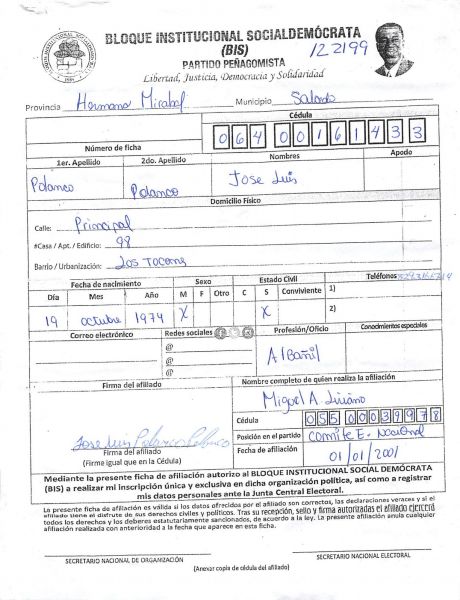 BLOQUE INSTITUCIONAL SOCIALDEMÓCRATA
(BIS)
122199
PARTIDO PEÑAGOMISTA
Libertad, Justicia, Democracia y Solidaridad
Provincia Hermana Mirabal Municipio Salcedo
Cédula
Número de ficha 064 0016143 3
1er. Apellido 2do. Apellido Nombres Apodo
Polanco Polanco Jose Luis
Domicilio Físico
Calle: Principal
#Casa / Apt. / Edificio: 98
Barrio / Urbanización: Los Tocones
Fecha de nacimiento Sexo Estado Civil Teléfonos
Día Mes Año M F Otro C S Conviviente 1)
19 octubre 1974 X X 2)
Correo electrónico Redes sociales Profesión/Oficio Conocimientos especiales
@
@
@
Albañil
Firma del afiliado Nombre completo de quien realiza la afiliación
Miguel A. Liriano
Cédula 055 0003997 8
Jose Luis Polanco Polanco
Posición en el partido Comite E. Nacional
Firma del afiliado
(Firme igual que en la Cédula)
Fecha de afiliación 01/01/2001
Mediante la presente ficha de afiliación autorizo al BLOQUE INSTITUCIONAL SOCIAL DEMÓCRATA
(BIS) a realizar mi inscripción única y exclusiva en dicha organización política, así como a registrar
mis datos personales ante la Junta Central Electoral.
La presente ficha de afiliación es válida si los datos ofrecidos por el afiliado son correctos, las declaraciones veraces y si el
afiliado tiene el disfrute de sus derechos civiles y políticos. Tras su recepción, sello y firma autorizadas el afiliado ejercerá
todos los derechos y los deberes estatutariamente sancionados, de acuerdo a la ley. La presente afiliación anula cualquier
afiliación realizada con anterioridad a la fecha que aparece en esta ficha.
SECRETARIO NACIONAL DE ORGANIZACIÓN SECRETARIO NACIONAL ELECTORAL
(Anexar copia de cédula del afiliado)